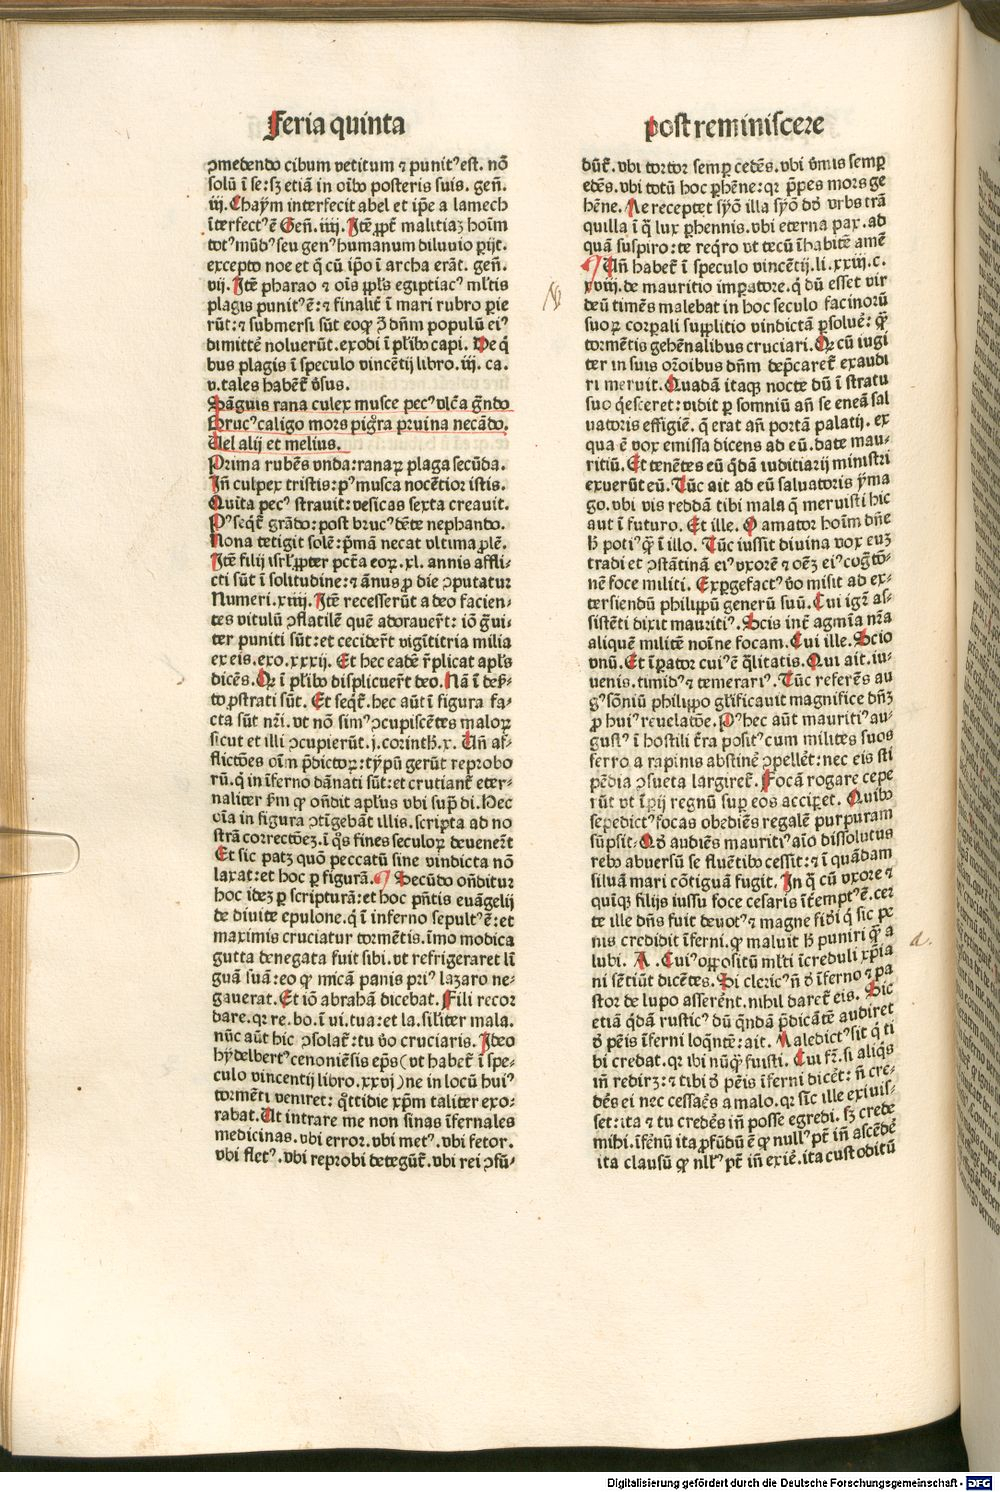 feria quinta
post reminiscere
ꝯmedendo cibum vetitum ⁊ punitꝰ est. nō
solū ī se: sꝫ etiā in oībꝰ posteris suis. gen̄.
iij. Chaym interfecit abel et ip̄e a lamech
īterfectꝰ ē Gen̄. iiij. Itē ꝓpt̄ malitiaꝫ hoīm
totꝰ mūdꝰ seu genꝰ humanum diluuio ꝑijt.
excepto noe et q̄ cū ip̄o ī archa erāt. gen̄.
vij. Itē pharao ⁊ oīs ppl̄s egiptiacꝰ ml̄tis
plagis punitꝰ ē: ⁊ finalit̄ ī mari rubro perie
rūt: ⁊ submersi sūt eo qꝫ dn̄m populū eiꝰ
dimittē noluerūt. exodi ī pl̄ibꝰ capi. De q̄
bus plagis ī speculo vincētij libro. iij. ca.
v. tales habent̄ v̄sus.
Sāguis rana culex musce pecꝰ vlc̄a g̃ndo
Brucꝰ caligo mors pig̃ra pruina necādo.
Uel alij et melius.
Prima rubēs vnda: ranaꝝ plaga secūda.
In̄ culpex tristis: pꝰ musca nocētior istis.
Quīta pecꝰ strauit: vesicas sexta creauit.
Pꝰ seqt̄ grādo: post brucꝰ dēte nephando.
Nona tetigit solē: pͥmā necat vltima ꝓlē.
Itē filij isrl̄ ꝓpter pct̄a eoꝝ. xl. annis affli-
cti sūt ī solitudine: ⁊ ānus ꝓ die ꝯputatur
Numeri. xiiij. Itē recesserūt a deo facien-
tes vitulū ꝯflatilē quē adorauert̄: iō g̃ui-
ter puniti sūt: et cecidert̄ vigītitria milia
ex eis. exo. xxxij. Et hec eadē r̄plicat apl̄s
dicēs. Qꝛ ī pl̄ibꝰ displicuert̄ deo. Nā ī des̄-
to ꝓstrati sūt. Et seqt̄. hec aūt ī figura fa-
cta sūt nr̄i. vt nō simꝰ ꝯcupiscētes maloꝝ
sicut et illi ꝯcupierūt. j. corinth̄. x. Un̄ af-
flictōes oīm p̄dictoꝝ: typū gerūt reprobo
rū. q̄ in īferno dānati sūt: et crutiant̄ eter-
naliter ẜm qꝫ on̄dit apl̄us vbi sup̄ di. Hec
oīa in figura ꝯtīgebāt illis. scripta ad no
strā correctōeꝫ. ī q̄s fines seculoꝝ deuenert̄
Et sic patꝫ quō peccatū sine vindicta nō
laxat: et hoc ꝑ figurā. Secūdo on̄ditur
hoc ideꝫ ꝑ scripturā: et hoc p̄ntis euāgelij
de diuite epulone. q̄ ī inferno sepultꝰ ē: et
maximis cruciatur tormētis. īmo modica
gutta denegata fuit sibi. vt refrigeraret lī
guā suā: eo qꝫ micā panis priꝰ lazaro ne-
gauerat. Et iō abrahā dicebat. Fili recor
dare. qꝛ re. bo. ī vi. tua: et la. sil̄iter mala.
nūc aūt hic ꝯsolat̄: tu v̄o cruciaris. Ideo
hydelbertꝰ cenoniēsis ep̄s (vt habet̄ ī spe-
culo vincentij libro. xxvj) ne in locū huiꝰ
tormēti veniret: q̄ttidie xp̄m taliter exo-
rabat. Ut intrare me non sinas īfernales
medicinas. vbi error. vbi metꝰ. vbi fetor.
vbi fletꝰ. vbi reprobi deteguūt̄. vbi rei ꝯfū-
dūt̄. vbi tortor semꝑ cedēs. vbi v̄mis semꝑ
edēs. vbi totū hoc ꝑhēne: qꝛ ꝑpes mors ge
hēne. Me receptet syō illa syō d̄d vrbs trā
quilla ī q̄ lux ꝑhennis. vbi eterna pax. ad
quā suspiro: te reqͥro vt tecū īhabitē amē
Un̄ habet̄ ī speculo vincētij. li. xxiij. c.
xviij. de mauritio imꝑatore. q̄ dū esset vir
deū timēs malebat in hoc seculo facinorū
suoꝝ corꝑali supplitio vindictā ꝑsoluē: q̄ꝫ
tormētis gehēnalibus cruciari. Qꝛ cū iugi
ter in suis or̄oibus dn̄m dep̄caret̄ exaudi
ri meruit. Quadā itaqꝫ nocte dū ī stratu
suo qͥesceret: vidit ꝑ somniū an̄ se eneā sal
uatoris effigiē. q̄ erat an̄ portā palatij. ex
qua ē vox emissa dicens ad eū. date mau-
ritiū. Et tenētes eū q̄dā iuditiarij ministri
exuerūt eū. Tūc ait ad eū saluatoris yma
go. vbi vis reddā tibi mala q̄ meruisti hic
aut ī futuro. Et ille. O amator hoīm dn̄e
h̄ potiꝰ qͣꝫ ī illo. Tūc iussit diuina vox euꝫ
tradi et ꝯstātinā eiꝰ vxorē ⁊ oēꝫ eiꝰ cog̃tō-
nē foce militi. Exꝑgefactꝰ v̄o misit ad ex-
tersiendū philippū generū suū. Cui igr̄ as-
sistēti dixit mauritiꝰ. Scis int̄ agmīa nr̄a
aliquē militē noīne focam. Cui ille. Scio
vnū. Et īꝑator cuiꝰ ē q̄litatis. Qui ait. iu-
uenis. timidꝰ ⁊ temerariꝰ. Tūc referēs au
gꝰ sōniū philippo gl̄ificauit magnifice dn̄ꝫ
ꝓ huiꝰ reuelatōe. Pꝰ hec aūt mauritiꝰ au-
gustꝰ ī hostili t̄ra positꝰ cum milites suos
ferro a rapinis abstinē ꝯpellēt: nec eis sti
pēdia ꝯsueta largiret̄. Focā rogare cepe
rūt vt īꝑij regnū suꝑ eos acciꝑet. Quibꝰ
sepedictꝰ focas obediēs regalē purpuram
sūpsit. Qd̄ audiēs mauritiꝰ aīo dissolutus
rebꝰ aduersū se fluentibꝰ cessit: ⁊ ī quādam
siluā mari cōtiguā fugit. In q̄ cū vxore ⁊
quīqꝫ filijs iussu foce cesaris ītemptꝰ ē. cer
te ille dn̄s fuit deuotꝰ ⁊ magne fidei q̄ sic pe
nis credidit īferni. qꝫ maluit h̄ puniri qͣꝫ a
lubi. A. Cuiꝰ oppositū ml̄ti īcreduli xp̄ia
ni sētiūt dicētes. Si clericꝰ n̄ d̄ īferno ⁊ pa
stor de lupo asserēnt. nihil daret̄ eis. Sic
etiā q̄dā rusticꝰ dū q̄ndā p̄dicātē audiret
d̄ pēis īferni loqn̄tē: ait. Maledictꝰ sit q̄ ti
bi credat. qꝛ ibi nūqͣꝫ fuisti. Cui fr̄. si aliq̄s
in̄ redirꝫ: ⁊ tibi d̄ pēis īferni dicēt: n̄ cre-
dēs ei nec cessaēs a malo. qꝛ sīc ille exiuis-
set: ita ⁊ tu credēs in̄ posse egredi. sꝫ crede
mihi. īfenū ita ꝓfūdū ē qꝫ nullꝰ pt̄ in̄ ascēdē
ita clausū qꝫ nll̄ꝰ pt̄ in̄ exiē. ita custoditū
a.
Digitalisierung gefördert durch die Deutsche Forschungsgemeinschaft - DFG